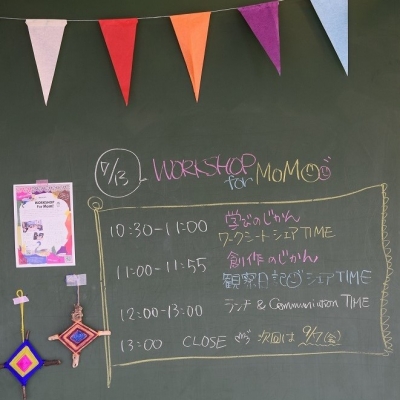 7/13 WORKSHOP
for MOM
10:30-11:00 学びのじかん
ワークシートシェアTIME
11:00-11:55 創作のじかん
観察日記シェアTIME
12:00-13:00 ランチ & Communication TIME
13:00 CLOSE 次回は 9/7(金)
WORKSHOP
For Mom!